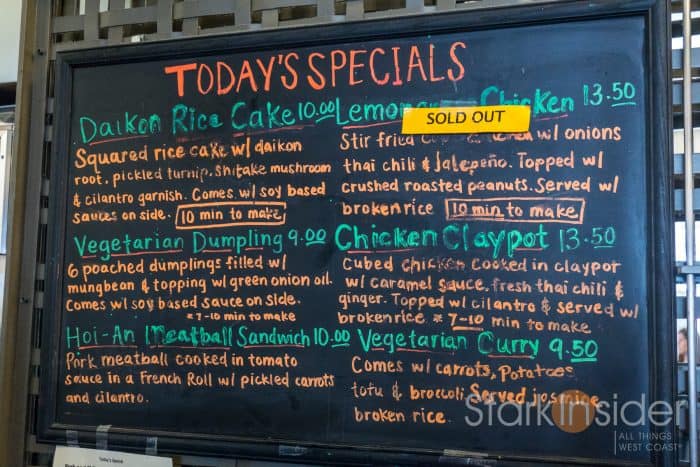 TODAY'S SPECIALS
Daikon Rice Cake 10.00
Squared rice cake w/ daikon
root, pickled turnip, shitake mushroom
& cilantro garnish. Comes w/ soy based
sauces on side. 10 min to make
Vegetarian Dumpling 9.00
6 poached dumplings filled w/
mungbean & topping w/ green onion oil.
Comes w/ soy based sauce on side.
* 7-10 min to make
Hoi-An Meatball Sandwich 10.00
Pork meatball cooked in tomato
sauce in a French Roll w/ pickled carrots
and cilantro.
Chicken 13.50
SOLD OUT
Stir fried w/ onions
thai chili & jalepeño. Topped w/
crushed roasted peanuts. Served w/
broken rice 10 min to make
Chicken Claypot 13.50
Cubed chicken cooked in claypot
w/ caramel sauce, fresh thai chili &
ginger. Topped w/ cilantro & served w/
broken rice. * 7-10 min to make
Vegetarian Curry 9.50
Comes w/ carrots, potatoes
tofu & broccoli. Served jasmine
broken rice.
STARKINSIDER
ALL THINGS
WEST COAST
Today's Special